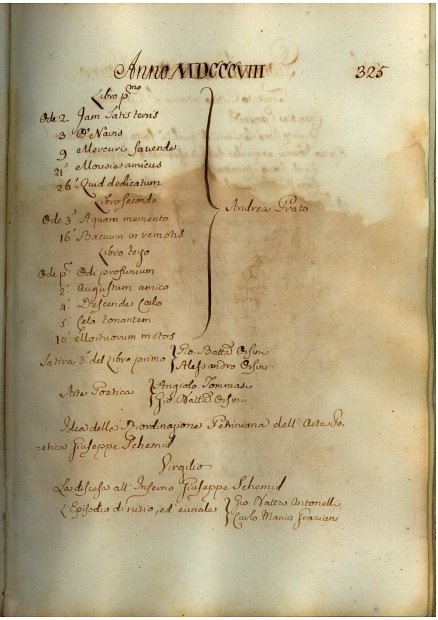 Anno MDCCCVIII 325
Libro p.mo
Ode 2. Jam satis terris
3 O Navis
9 Mercuri facunde
21 Musis amicus
26. Quid dedicatum
Libro secondo
Ode 3. Aquam memento
16. Bacum in remotis
Libro terzo
Ode p.a Odi profunium
2. Augustum amico
4. Descende Cœlo
5. Celo tonantem
10 Mortuorum motos
Andrea Prato
Satira 3.a del Libro primo Gio. Batta Orsini
Alessandro Orsini
Arte Poetica Angiolo Tommasi
Gio. Batta Orsini
Idea della Riordinazione Petriniana dell'Arte Po=
=etica Giuseppe Schemid
Virgilio
La discesa all'Inferno Giuseppe Schemid
L'Episodio di niso, ed'eurialo Gio. Batta Antonelli
Carlo Marco Graziani